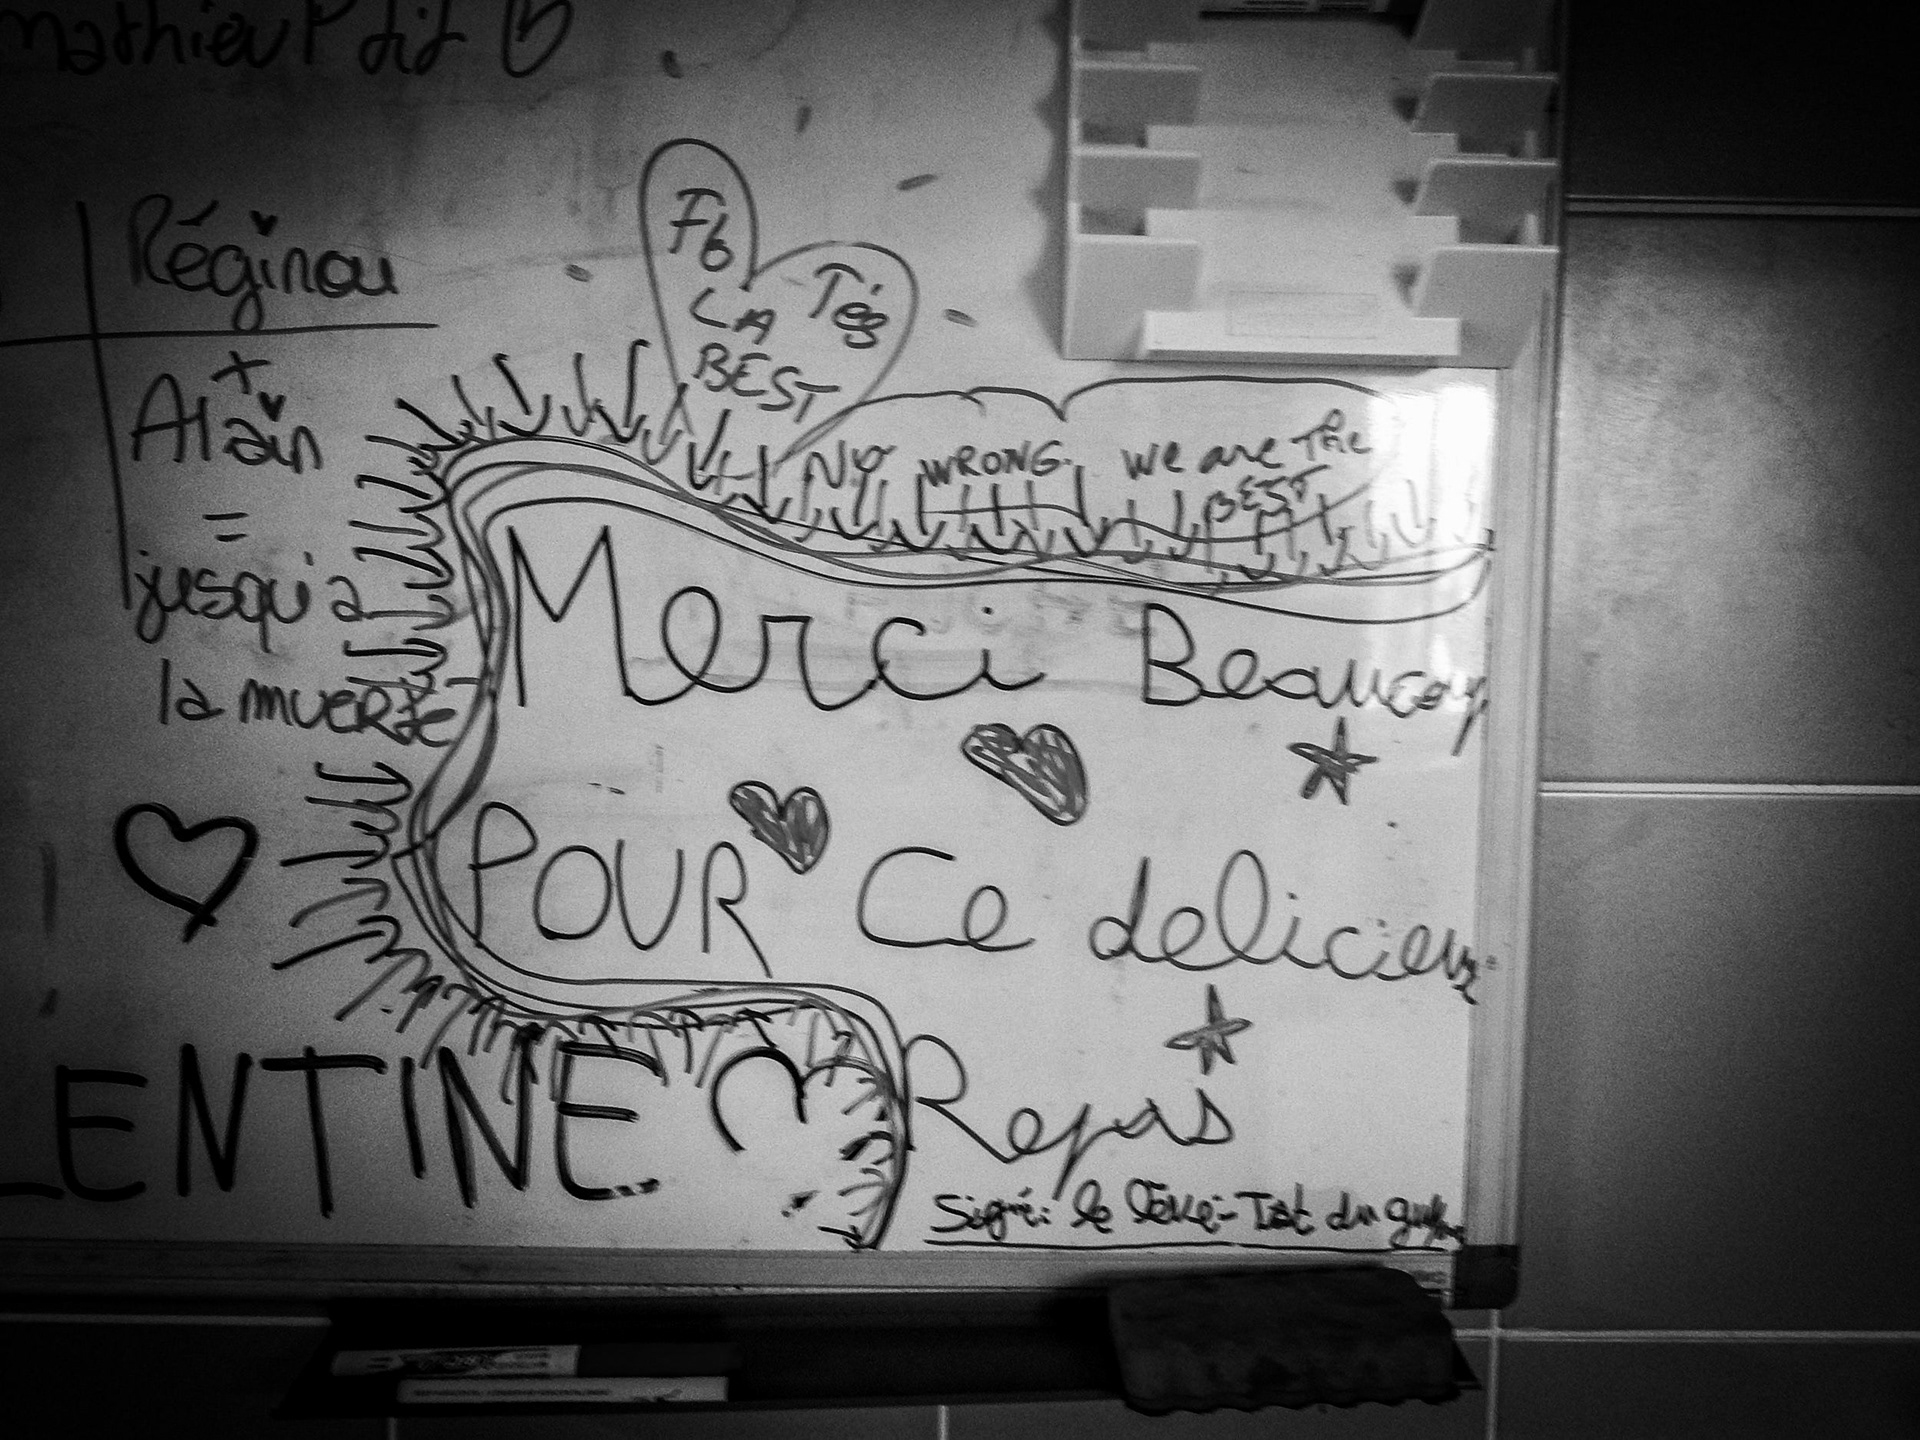 mathieu P'tit B
Réginou
+
Alain
=
jusqu'a
la muerté
Tés
LA
BEST
WRONG. We are The
BEST
Merci Beaucoup
POUR Ce delicieux
Repas
Signé: le
LENTINE